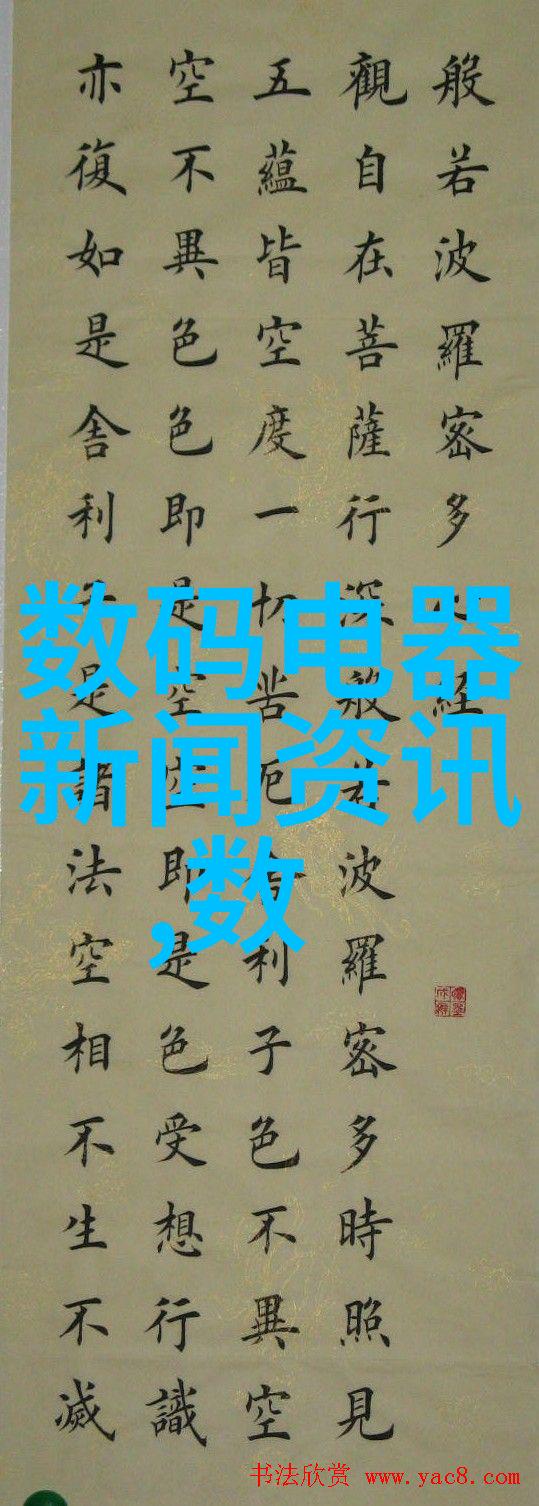 般若波羅密多心經
觀自在菩薩行深般若波羅密多時照見
五蘊皆空度一切苦厄舍利子色不異空
空不異色色即是空空即是色受想行識
亦復如是舍利子是諸法空相不生不滅
数码电器
新闻资讯
,数
书法欣赏 www.yac8.com